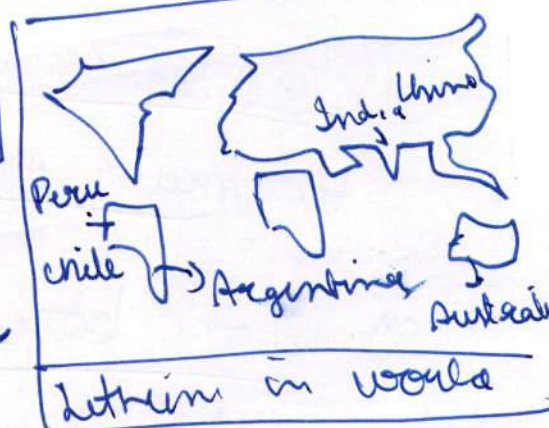 China
India
Peru
+
Chile
Argentina
Australi
Lithium in world